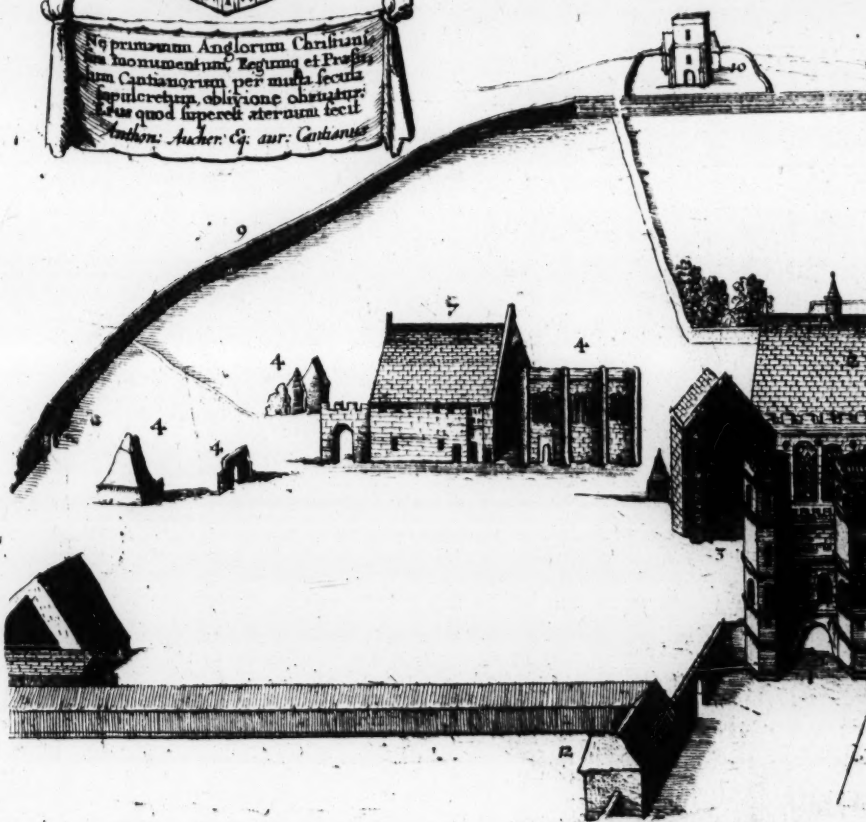 Ne primævum Anglorum Christian
monumentum, Regumq et Præsu
lum Cantianorum per multa secula
sepulcretum, oblivione obruatur;
quod superest æternum fecit
Anthon: Aucher: Eq: aur: Cantianus
10
9
5
4
4
4
4
8
3
12